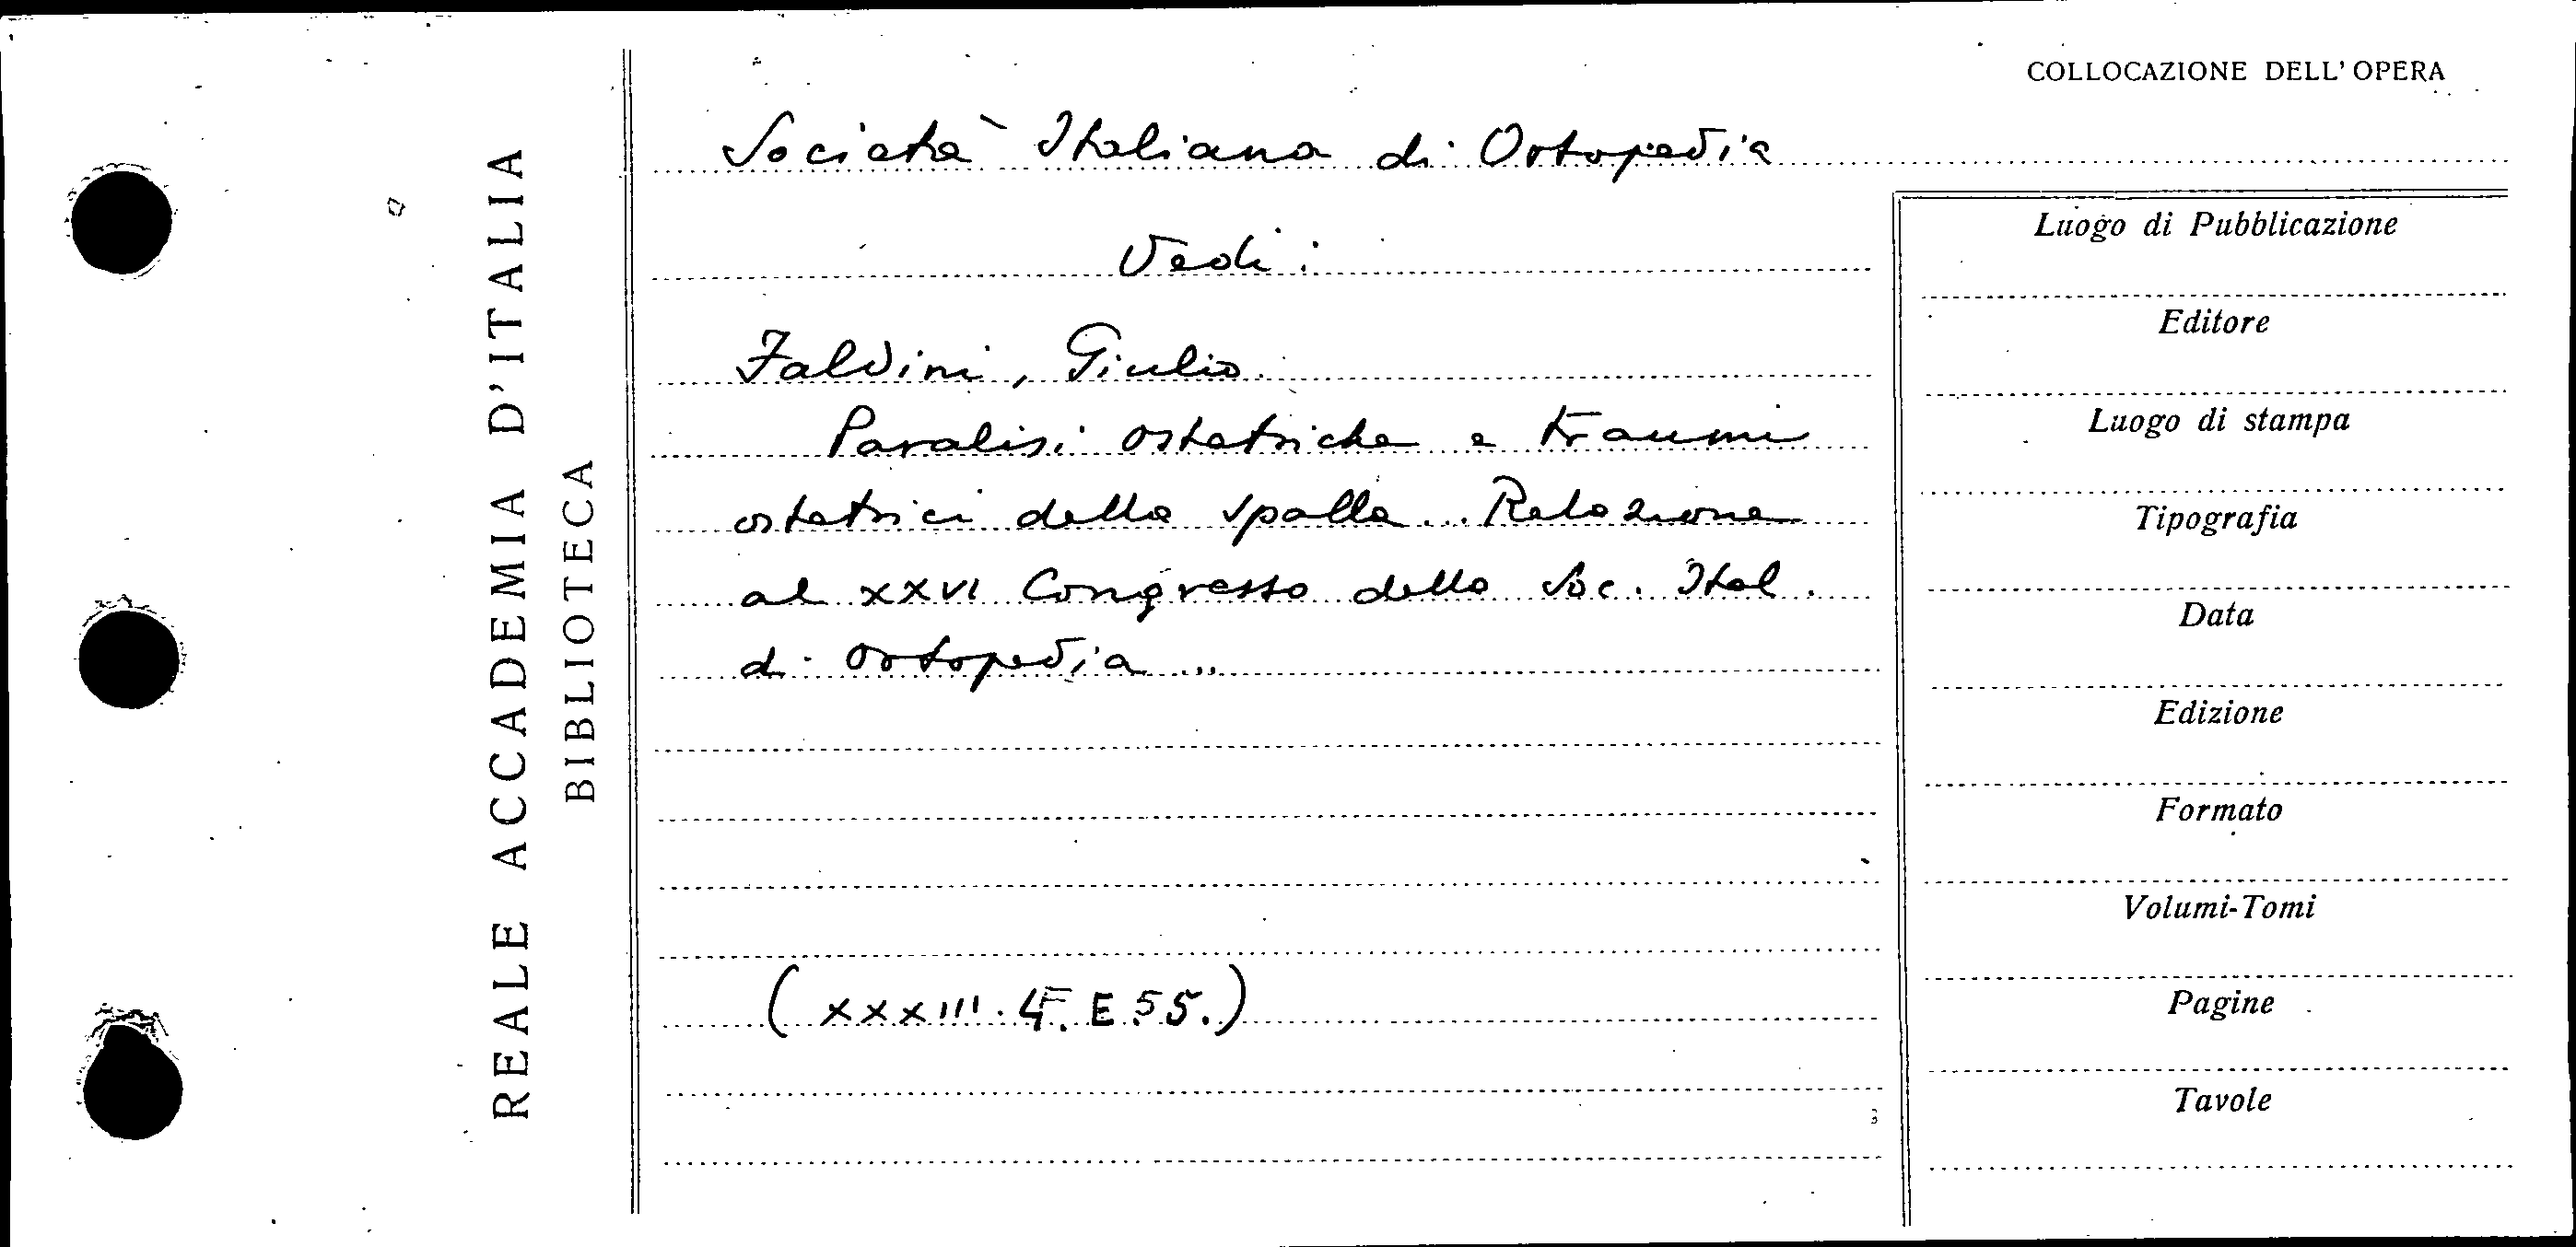 COLLOCAZIONE DELL'OPERA
REALE ACCADEMIA D'ITALIA
BIBLIOTECA
Società Italiana di Ortopedia
Vedi:
Faldini, Giulio.
Paralisi ostetriche e traumi
ostetrici della spalla... Relazione
al XXVI Congresso della Soc. Ital.
di Ortopedia ...
(XXXIII. 4F. E 55.)
Luogo di Pubblicazione
Editore
Luogo di stampa
Tipografia
Data
Edizione
Formato
Volumi-Tomi
Pagine
Tavole